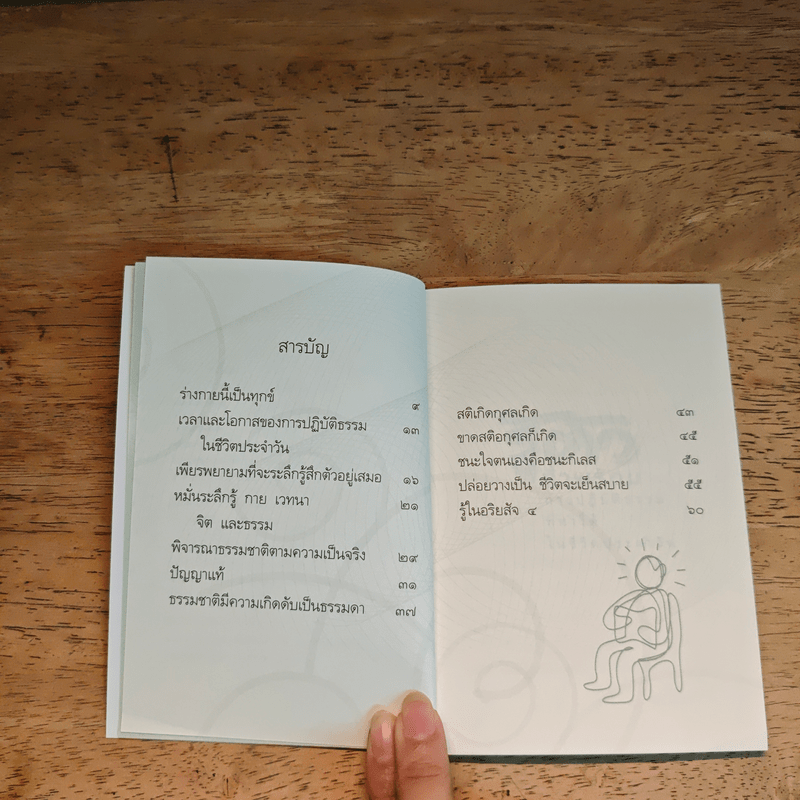 สารบัญ
ร่างกายนี้เป็นทุกข์ ๙
เวลาและโอกาสของการปฏิบัติธรรม ๑๓
ในชีวิตประจำวัน
เพียรพยายามที่จะระลึกรู้สึกตัวอยู่เสมอ ๑๖
หมั่นระลึกรู้ กาย เวทนา ๒๑
จิต และธรรม
พิจารณาธรรมชาติตามความเป็นจริง ๒๙
ปัญญาแท้ ๓๑
ธรรมชาติมีความเกิดดับเป็นธรรมดา ๓๗
สติเกิดกุศลเกิด ๔๓
ขาดสติอกุศลก็เกิด ๔๕
ชนะใจตนเองคือชนะกิเลส ๕๑
ปล่อยวางเป็น ชีวิตจะเย็นสบาย ๕๕
รู้ในอริยสัจ ๔ ๖๐